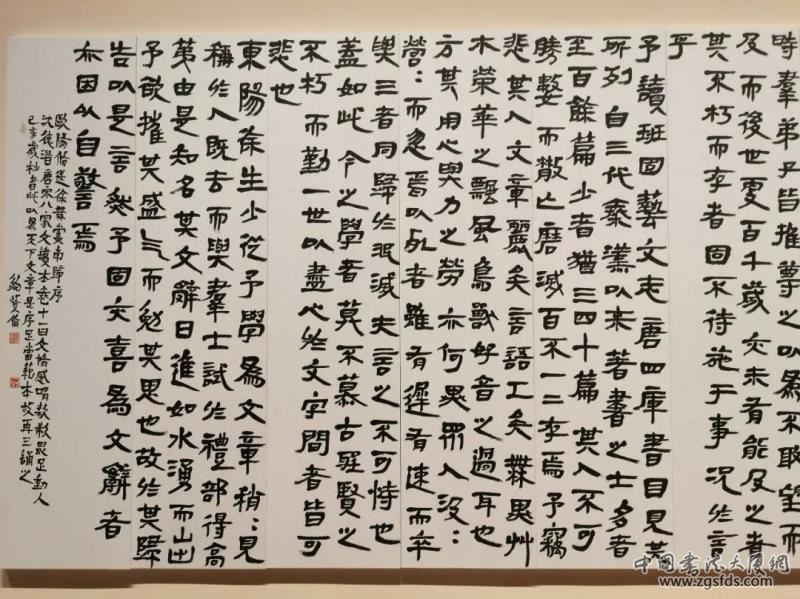 時羣弟子皆推尊之以爲不敢望而
及而後世更百千歲亦未有能及之者
其不朽而存者固不待施于事況於言
乎
予讀班固藝文志唐四庫書目見其
所列自三代秦漢以來著書之士多者
至百餘篇少者猶三四十篇其人不可
勝數而散亡磨滅百不一二存焉予竊
悲其人文章麗矣言語工矣無異艸
木榮華之飄風鳥獸好音之過耳也
方其用心與力之勞亦何異眾人汲：
營：而忽焉以死者雖有遲有速而卒
與三者同歸於泯滅夫言之不可恃也
蓋如此今之學者莫不慕古聖賢之
不朽而勤一世以盡心於文字間者皆可
悲也
東陽徐生少從予學爲文章稍：見
稱於人既去而與羣士試於禮部得高
第由是知名其文辭日進如水湧而山出
予欲摧其盛气而勉其思也故於其歸
告以是言然予固亦喜爲文辭者
亦因以自警焉
歐陽修送徐無黨南歸序
沈德潛唐宋八家文讀本卷十一曰文情感喟歔欷最足動人
己亥歲杪書此以爲天下文章是序足當範本故再三誦之
鮑賢倫
中國書法大廈網
www.zgsfds.com